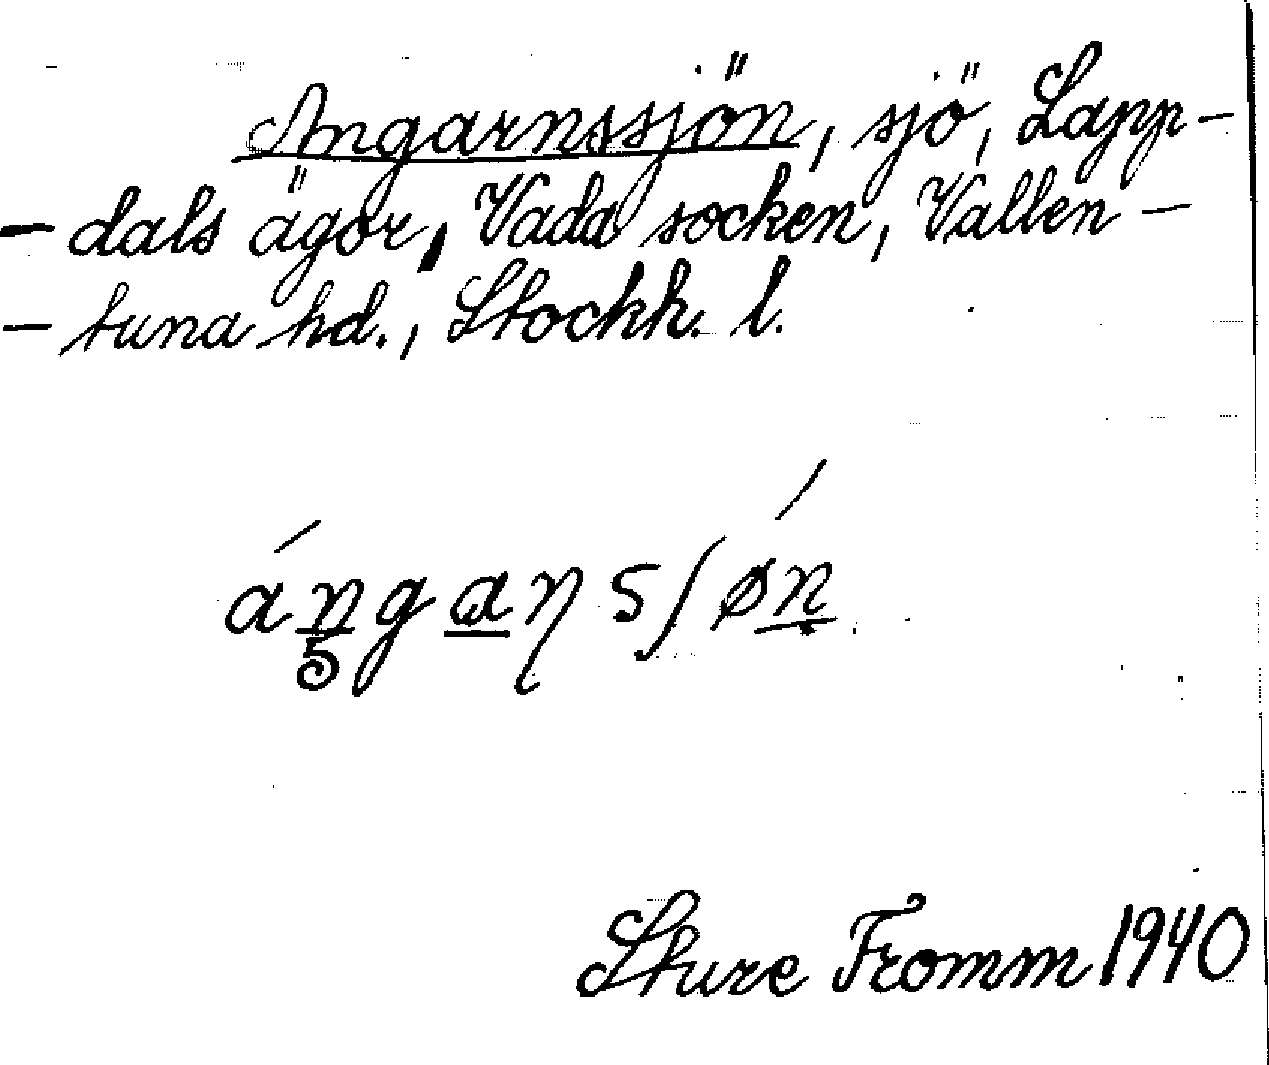 Angarnssjön, sjö, Lapp-
-dals ägor, Vada socken, Vallen-
-tuna hd., Stockh. l.
Sture Fromm 1940